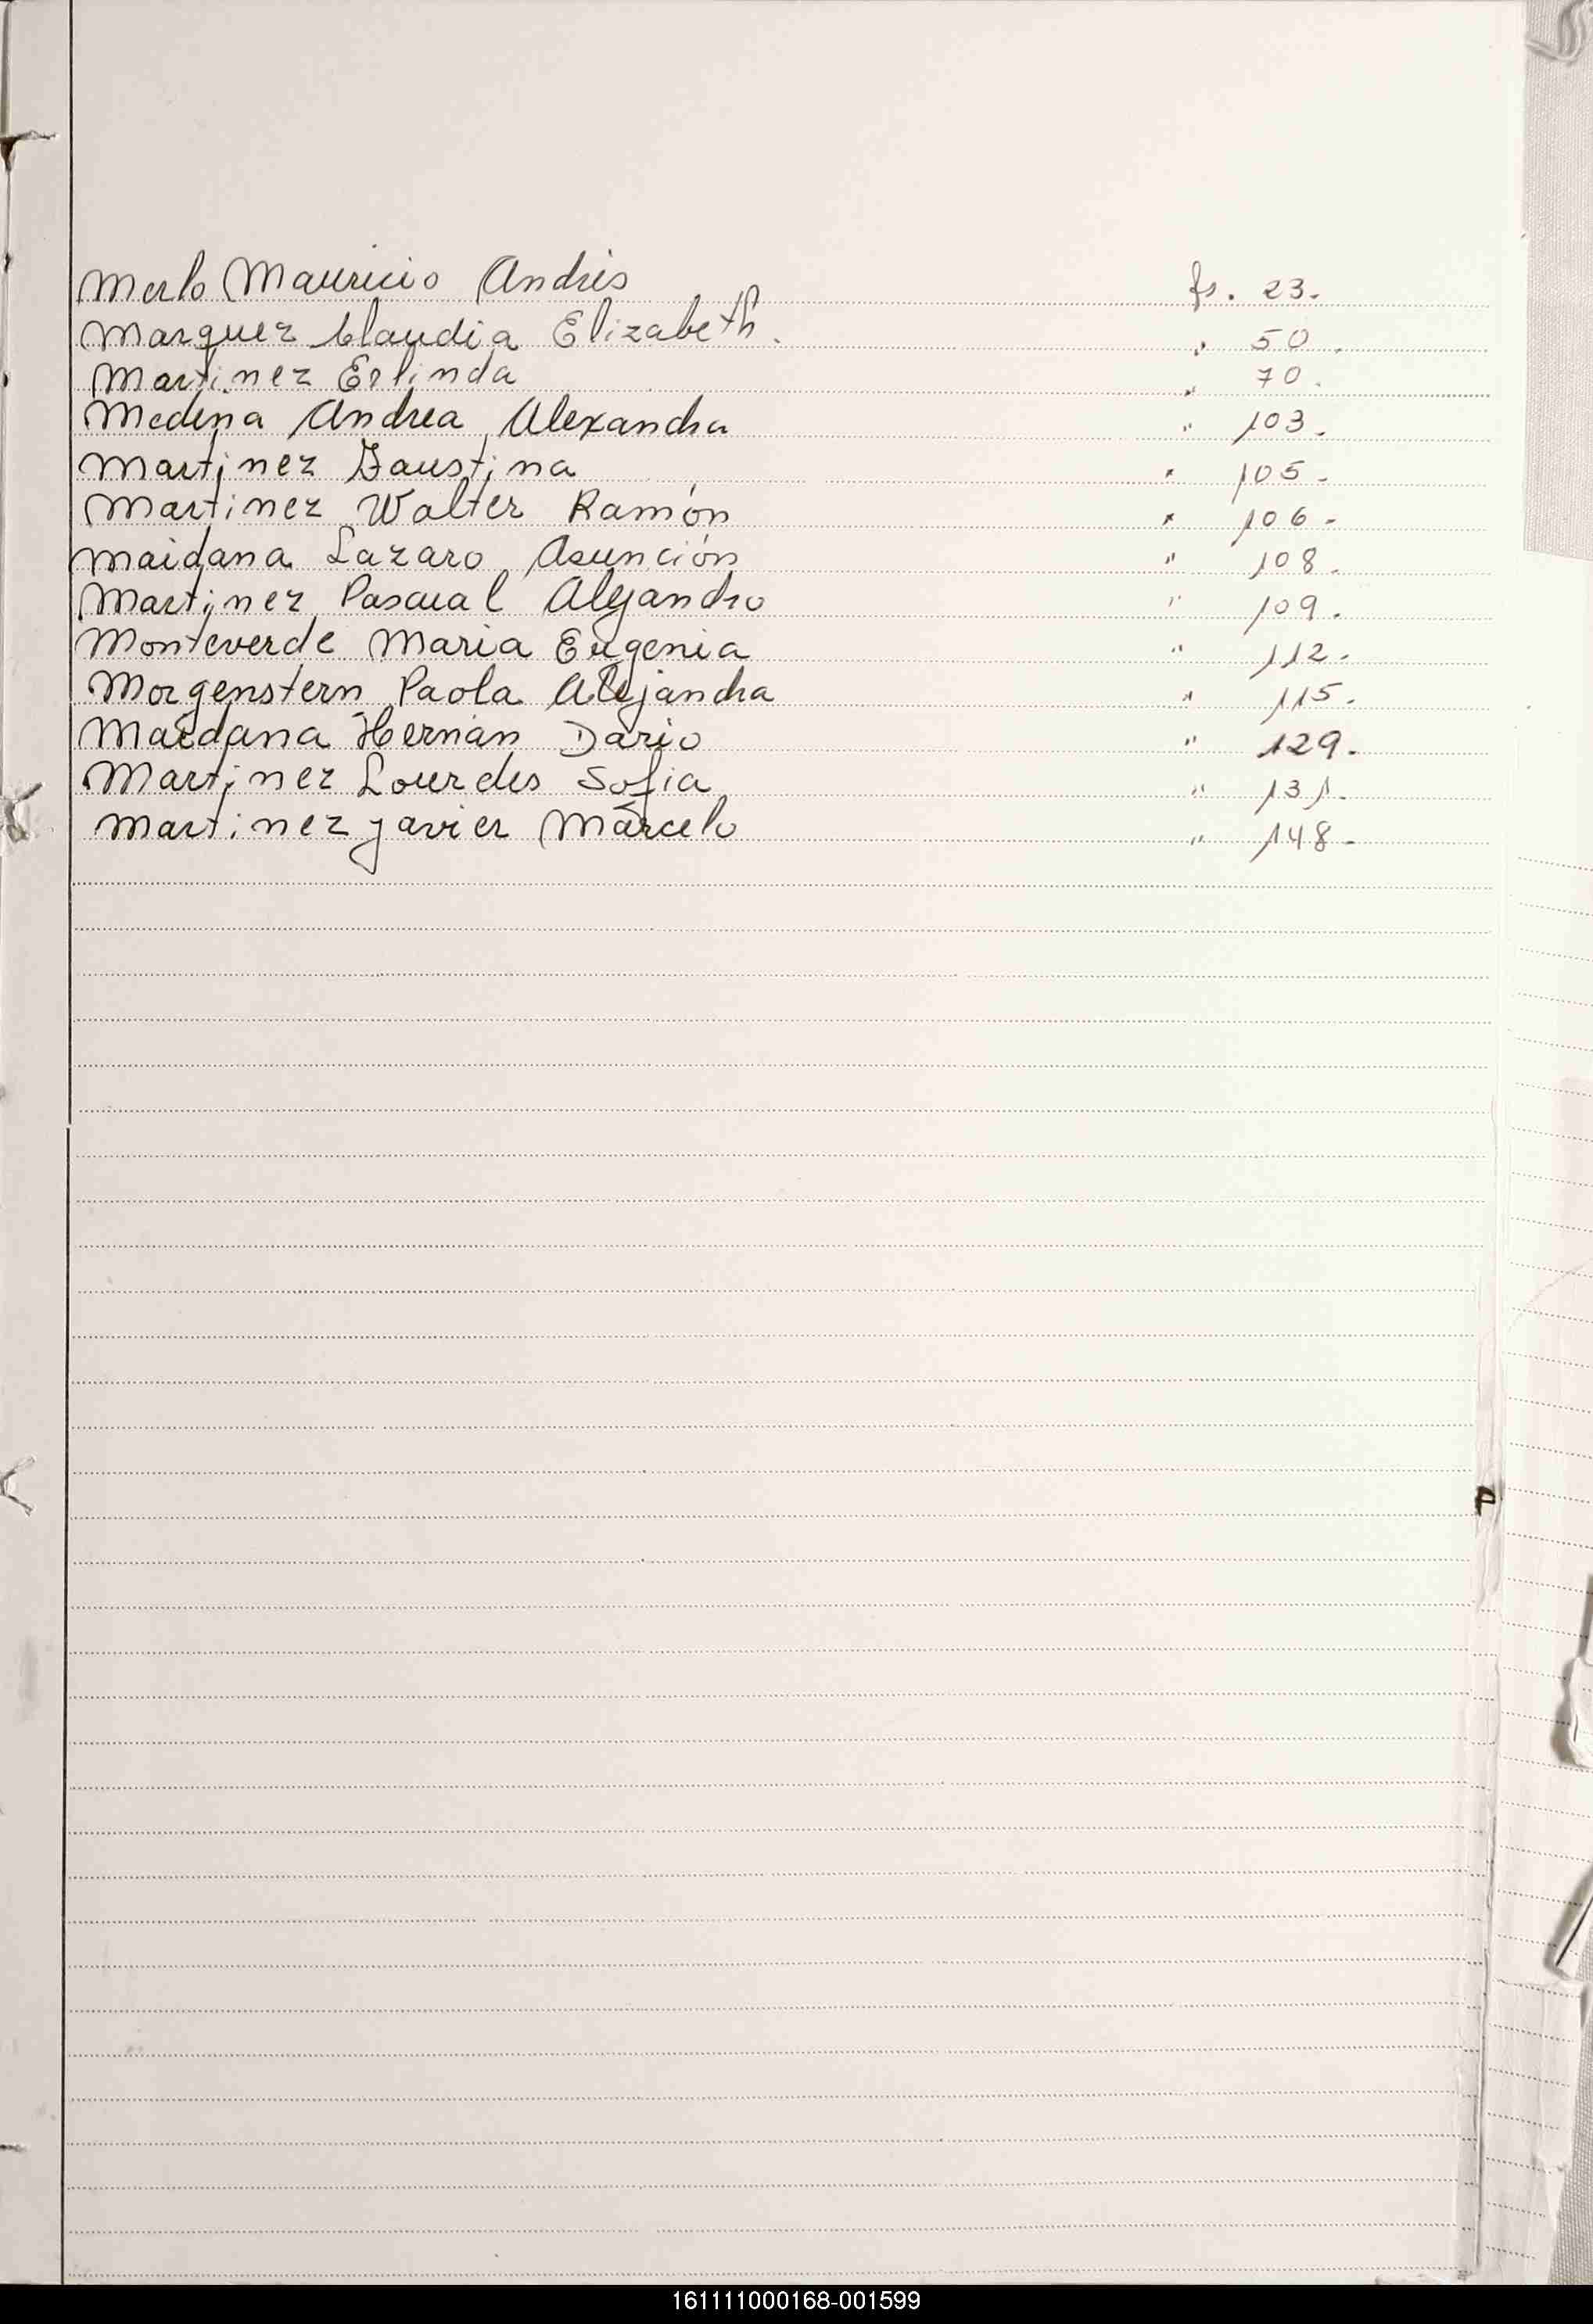 Merlo Mauricio Andrés fs. 23.
Marquez Claudia Elizabeth. " 50.
Martinez Erlinda " 70.
Medina Andrea Alexandra " 103.
Martinez Faustina " 105.
Martinez Walter Ramón " 106.
Maidana Lazaro Asunción " 108.
Martinez Pascual Alejandro " 109.
Monteverde Maria Eugenia " 112.
Morgenstern Paola Alejandra " 115.
Maidana Hernán Dario " 129.
Martinez Lourdes Sofia " 131.
Martinez Javier Marcelo " 148.
P
161111000168-001599